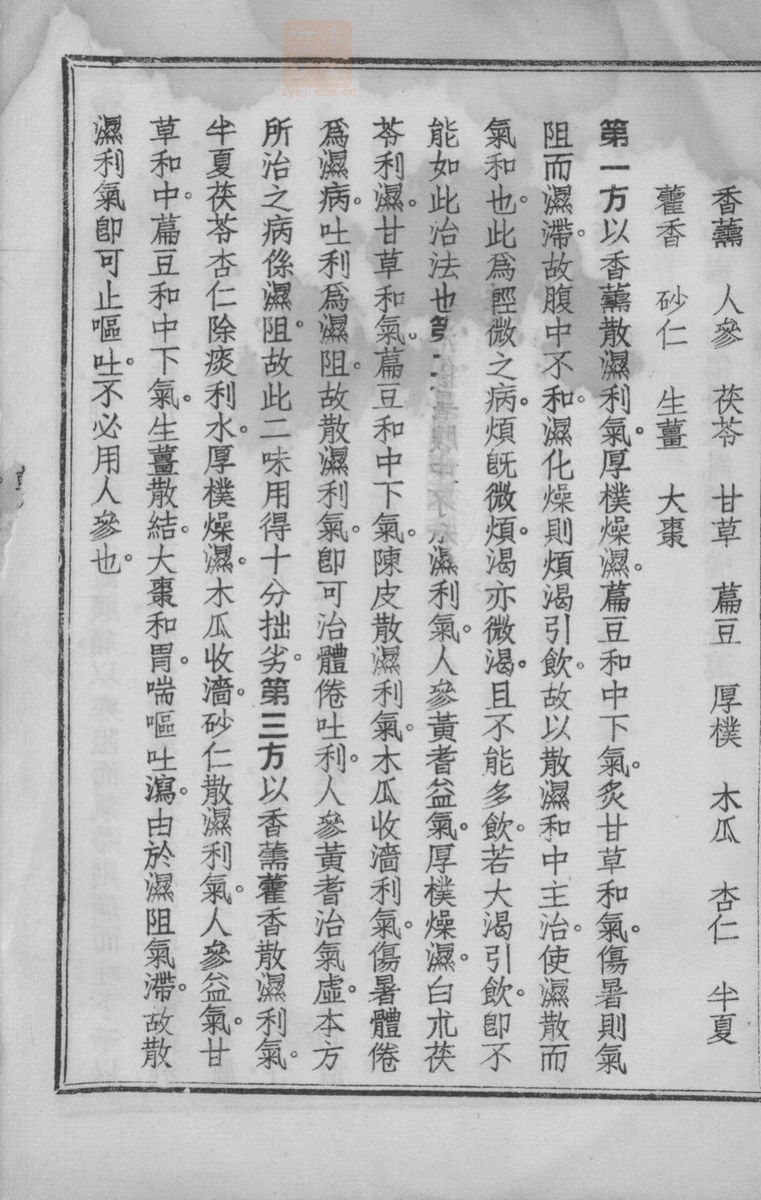 香薷 人參 茯苓 甘草 萹豆 厚樸 木瓜 杏仁 半夏
藿香 砂仁 生薑 大棗
第一方以香薷散濕利氣厚樸燥濕。萹豆和中下氣。炙甘草和氣。傷暑則氣
阻而濕滯。故腹中不和。濕化燥則煩渴引飲。故以散濕和中主治。使濕散而
氣和也。此爲輕微之病。煩旣微煩。渴亦微渴。且不能多飲。若大渴引飲。卽不
能如此治法也第二方 濕利氣。人參黃耆益氣。厚樸燥濕。白朮茯
苓利濕。甘草和氣。萹豆和中下氣。陳皮散濕利氣。木瓜收濇利氣。傷暑體倦
爲濕病。吐利爲濕阻。故散濕利氣。卽可治體倦吐利。人參黃耆治氣虛。本方
所治之病係濕阻。故此二味用得十分拙劣。第三方以香薷藿香散濕利氣。
半夏茯苓杏仁除痰利水。厚樸燥濕。木瓜收濇。砂仁散濕利氣。人參益氣。甘
草和中。萹豆和中下氣。生薑散結。大棗和胃。喘嘔吐瀉。由於濕阻氣滯。故散
濕利氣卽可止嘔吐。不必用人參也。